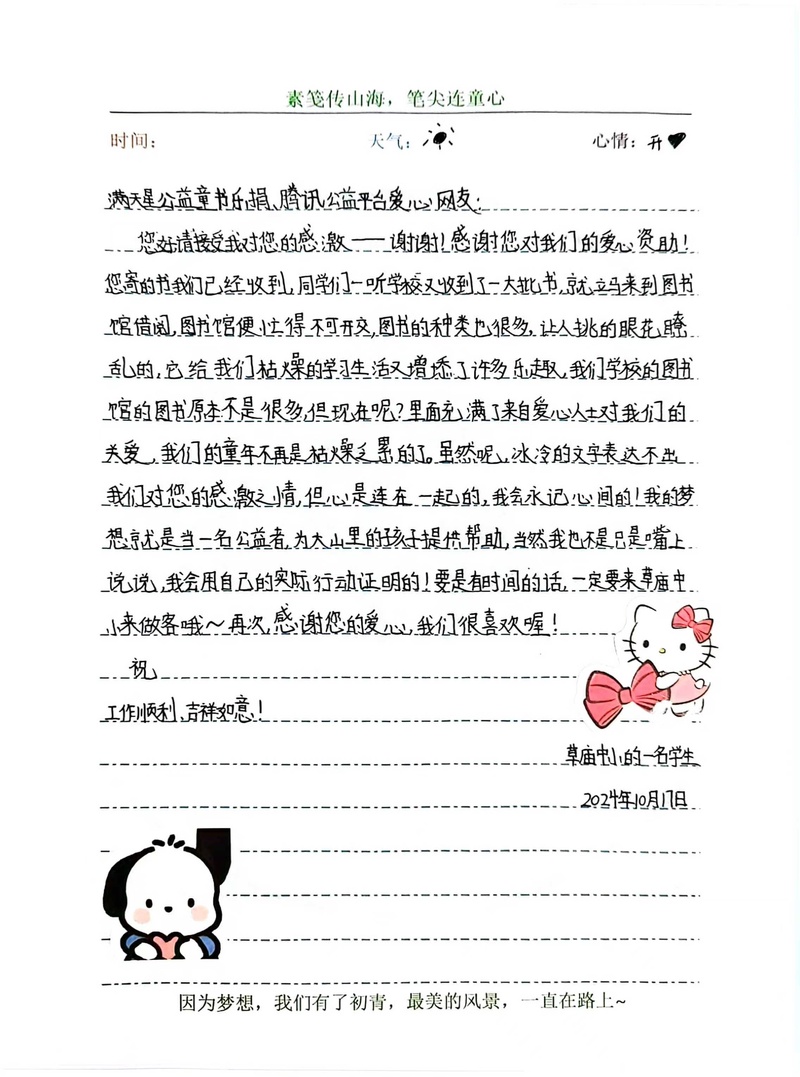 素笺传山海，笔尖连童心
时间： 天气： 心情：开
满天星公益童书乐捐、腾讯公益平台爱心网友：
您好请接受我对您的感激——谢谢！感谢您对我们的爱心资助！
您寄的书我们已经收到，同学们一听学校又收到了一大批书，就立马来到图书
馆借阅，图书馆便忙得不可开交，图书的种类也很多，让人挑的眼花瞭
乱的，它给我们枯燥的学习生活又增添了许多乐趣，我们学校的图书
馆的图书原本不是很多，但现在呢？里面充满了来自爱心人士对我们的
关爱，我们的童年不再是枯燥乏累的了。虽然呢，冰冷的文字表达不出
我们对您的感激之情，但心是连在一起的，我会永记心间的！我的梦
想就是当一名公益者，为大山里的孩子提供帮助，当然我也不是只是嘴上
说说，我会用自己的实际行动证明的！要是有时间的话，一定要来草庙中
小来做客哦～再次，感谢您的爱心，我们很喜欢喔！
祝
工作顺利，吉祥如意！
草庙中小的一名学生
2024年10月17日
因为梦想，我们有了初青，最美的风景，一直在路上~